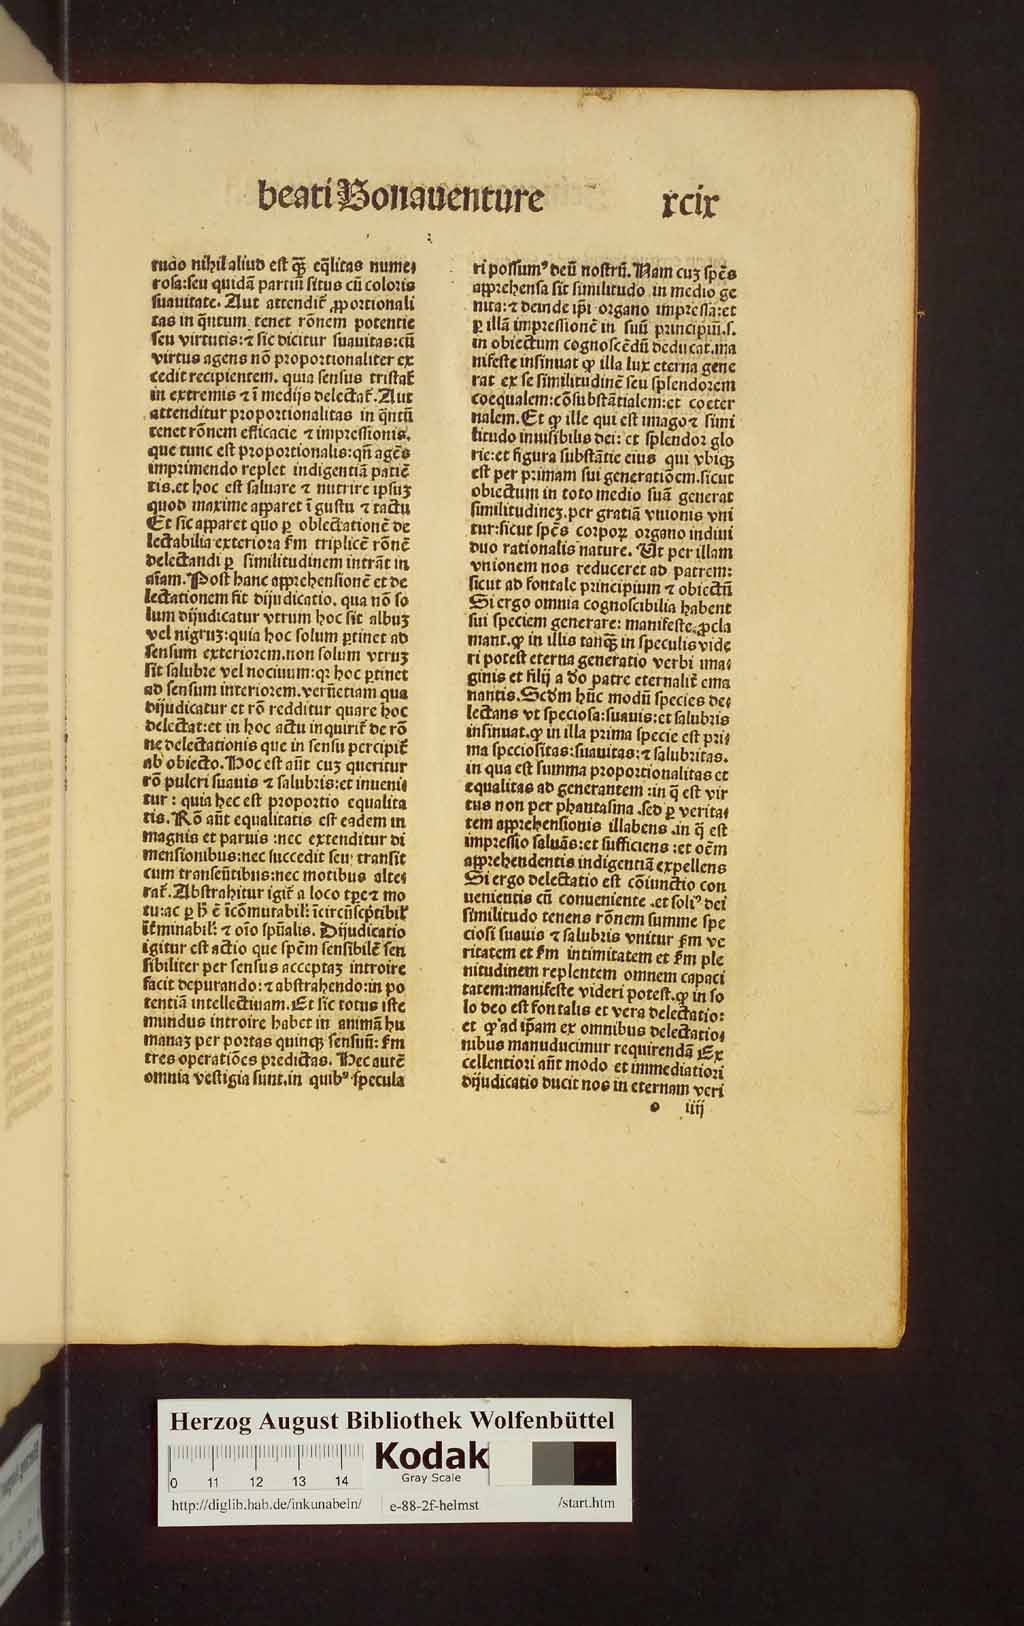 beati Bonauenture xcix
tudo nihil aliud est q̄ꝫ eq̄litas nume⸗
rosa: seu quidā partiū situs cū coloris
suauitate. Aut attendit̄ ꝓportionali
tas in q̄ntum tenet rōnem potentie
seu virtutis: ⁊ sic dicitur suauitas: cū
virtus agens nō proportionaliter ex
cedit recipientem. quia sensus tristat̄
in extremis ⁊ ī medijs delectat̄. Aut
attenditur proportionalitas in q̄ntū
tenet rōnem efficacie ⁊ impressionis.
que tunc est proportionalis: qn̄ agēs
imprimendo replet indigentiā patiē
tis. et hoc est saluare ⁊ nutrire ipsuꝫ
quod maxime apparet ī gustu ⁊ tactu
Et sic apparet quo ꝑ oblectationē de
lectabilia exteriora ẜm triplicē rōnē
delectandi ꝑ similitudinem intrāt in
aīam. Post hanc apprehensionē et de
lectationem fit dijudicatio. qua nō so
lum dijudicatur vtrum hoc sit albuꝫ
vel nigruꝫ: quia hoc solum ꝑtinet ad
sensum exteriorem. non solum vtruꝫ
sit salubre vel nociuum: qꝛ hoc ꝑtinet
ad sensum interiorem. verūetiam qua
dijudicatur et rō redditur quare hoc
delectat: et in hoc actu inquirit̄ de rō
ne delectationis que in sensu percipit̄
ab obiecto. Hoc est aūt cuꝫ queritur
rō pulcri suauis ⁊ salubris: et inueni⸗
tur: quia hec est proportio equalita
tis. Rō aūt equalitatis est eadem in
magnis et paruis: nec extenditur di
mensionibus: nec succedit seu transit
cum transeūtibus: nec motibus alte⸗
rat̄. Abstrahitur igit̄ a loco tꝑe ⁊ mo
tu: ac ꝑ h̄ ē īcōmutabil̓: īcircūscp̄tibil̓
īt̄minabil̓: ⁊ oīo spūalis. Dijudicatio
igitur est actio que spēm sensibilē sen
sibiliter per sensus acceptaꝫ introire
facit depurando: ⁊ abstrahendo: in po
tentiā intellectiuam. Et sic totus iste
mundus introire habet in animā hu
manaꝫ per portas quinqꝫ sensuū: ẜm
tres operatiōes predictas. Hec autē
omnia vestigia sunt. in quibꝰ specula
ri possumꝰ deū nostrū. Nam cuꝫ spēs
apprehensa sit similitudo in medio ge
nita: ⁊ deinde ip̄i organo impressa: et
ꝑ illā impressionē in suū principiū. s.
in obiectum cognoscēdū deducat. ma
nifeste insinuat ꝙ illa lux eterna gene
rat ex se similitudinē seu splendorem
coequalem: cōsubstātialem: et coeter
nalem. Et ꝙ ille qui est imago ⁊ simi
litudo inuisibilis dei: et splendor glo
rie: et figura substātie eius qui vbiqꝫ
est per primam sui generatiōem. sicut
obiectum in toto medio suā generat
similitudineꝫ. per gratiā vnionis vni
tur: sicut spēs corpoꝝ organo indiui
duo rationalis nature. Ut per illam
vnionem nos reduceret ad patrem:
sicut ad fontale principium ⁊ obiectū
Si ergo omnia cognoscibilia habent
sui speciem generare: manifeste ꝓcla
mant. ꝙ in illis tanq̄ꝫ in speculis vide
ri potest eterna generatio verbi ima⸗
ginis et filij a deo patre eternalit̄ ema
nantis. Scdm hūc modū species de⸗
lectans vt speciosa: suauis: et salubris
insinuat. ꝙ in illa prima specie est pri⸗
ma speciositas: suauitas: ⁊ salubritas.
in qua est summa proportionalitas et
equalitas ad generantem: in q̄ est vir
tus non per phantasma. sed ꝑ verita⸗
tem apprehensionis illabens. in q̄ est
impressio saluās: et sufficiens: et oēm
apprehendentis indigentiā expellens
Si ergo delectatio est cōiunctio con
uenientis cū conueniente. et soliꝰ dei
similitudo tenens rōnem summe spe
ciosi suauis ⁊ salubris vnitur ẜm ve
ritatem et ẜm intimitatem et ẜm ple
nitudinem replentem omnem capaci
tatem: manifeste videri potest. ꝙ in so
lo deo est fontalis et vera delectatio:
et ꝙ ad ip̄am ex omnibus delectatio⸗
nibus manuducimur requirendā Ex
cellentiori aūt modo et immediatiori
dijudicatio ducit nos in eternam veri
o iiij
Herzog August Bibliothek Wolfenbüttel
0 11 12 13 14
Kodak
Gray Scale
http://diglib.hab.de/inkunabeln/ e-88-2f-helmst /start.htm